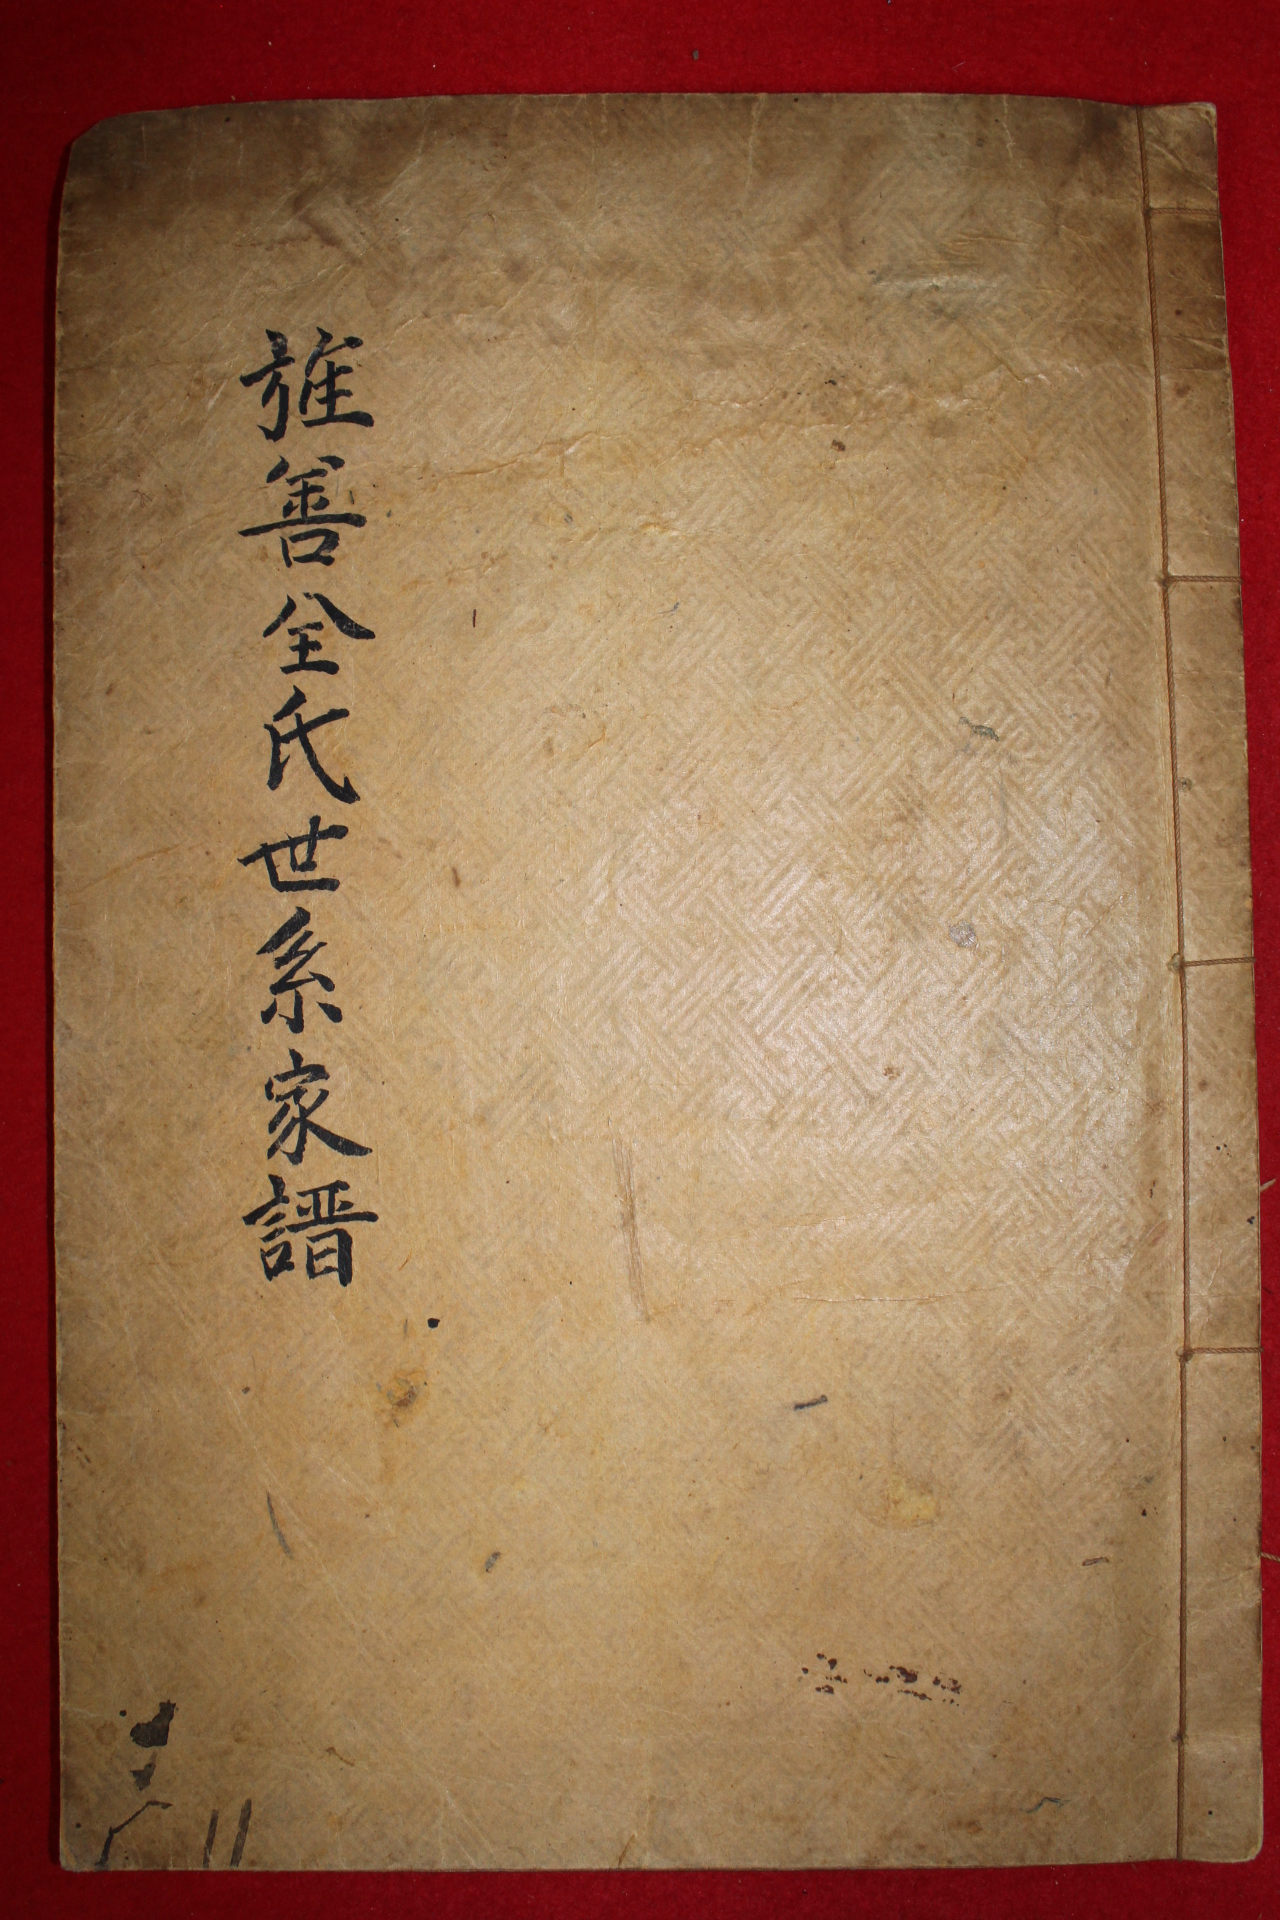 旌善全氏世系家譜